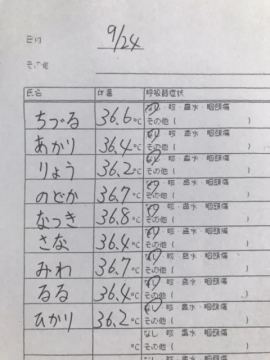 日付 9/24
その他
氏名 体温 呼吸器症状
ちづる 36.6℃ なし・咳・鼻水・咽頭痛
その他( )
あかり 36.4℃ なし・咳・鼻水・咽頭痛
その他( )
りょう 36.2℃ なし・咳・鼻水・咽頭痛
その他( )
のどか 36.7℃ なし・咳・鼻水・咽頭痛
その他( )
なつき 36.8℃ なし・咳・鼻水・咽頭痛
その他( )
さな 36.4℃ なし・咳・鼻水・咽頭痛
その他( )
みわ 36.7℃ なし・咳・鼻水・咽頭痛
その他( )
るる 36.4℃ なし・咳・鼻水・咽頭痛
その他( )
ひかり 36.2℃ なし・咳・鼻水・咽頭痛
その他( )
℃ なし・咳・鼻水・咽頭痛
その他( )